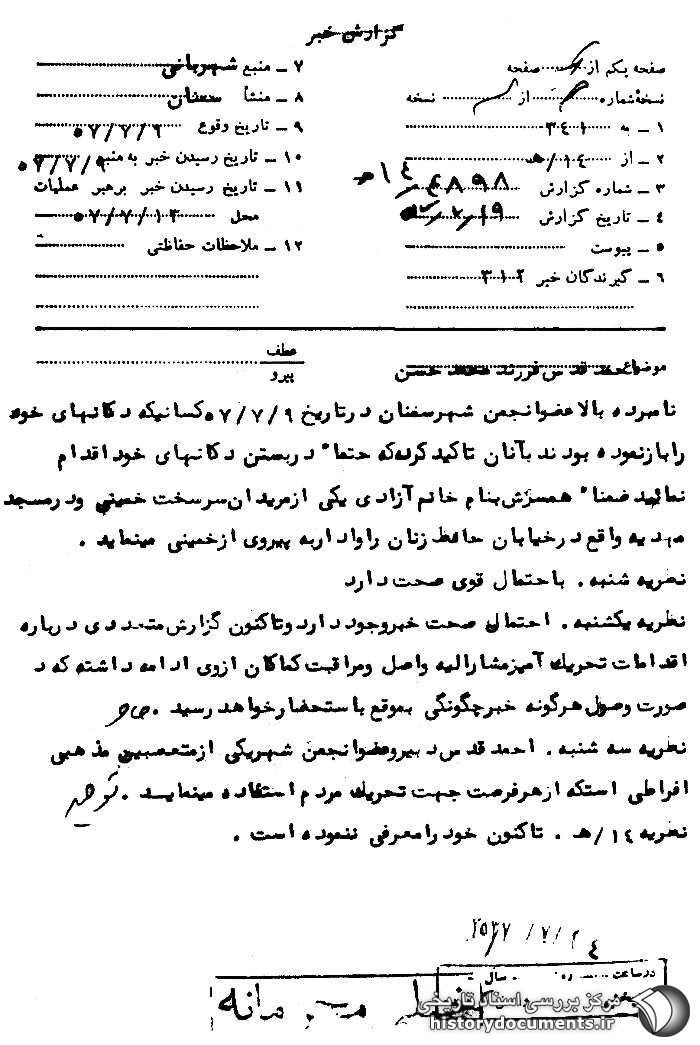 گزارش خبر
صفحه یکم از صفحه
نسخه شماره از نسخه
۱ ـ به ۳٤۱
۲ ـ از ۱٤/هـ
۳ ـ شماره گزارش ٤۸۹۸/۱٤هـ
٤ ـ تاریخ گزارش
۵ ـ پیوست
۶ ـ گیرندگان خبر ۳۱۲
۷ ـ منبع شهربانی
۸ ـ منشأ سمنان
۹ ـ تاریخ وقوع ۵۷/۷/۹
۱۰ ـ تاریخ رسیدن خبر به منبع ۵۷/۷/۹
۱۱ ـ تاریخ رسیدن خبر برهبر عملیات
محل ۵۷/۷/۱۲
۱۲ ـ ملاحظات حفاظتی
موضوع احمد قدس فرزند محمد حسن
عطف
پیرو
نامبرده بالا عضو انجمن شهر سمنان در تاریخ ۵۷/۷/۹ کسانیکه دکانهای خود
را باز نموده بودند بآنان تاکید کرده که حتماً در بستن دکانهای خود اقدام
نمائید ضمناً همسرش بنام خانم آزادی یکی از مریدان سرسخت خمینی و در مسجد
مهدیه واقع در خیابان حافظ زنان را وادار به پیروی از خمینی مینماید .
نظریه شنبه . باحتمال قوی صحت دارد
نظریه یکشنبه . احتمال صحت خبر وجود دارد و تاکنون گزارش متعددی درباره
اقدامات تحریک آمیز مشارالیه واصل و مراقبت کماکان از وی ادامه داشته که د
صورت وصول هرگونه خبر چگونگی بموقع باستحضار خواهد رسید .
نظریه سه شنبه . احمد قدس دبیر و عضو انجمن شهر یکی از متعصبین مذهبی
افراطی استکه از هر فرصت جهت تحریک مردم استفاده مینماید .
نظریه ۱٤/هـ . تاکنون خود را معرفی ننموده است .
در ساعت روز سال
بخش
مرکز بررسی اسناد تاریخی
historydocuments.ir